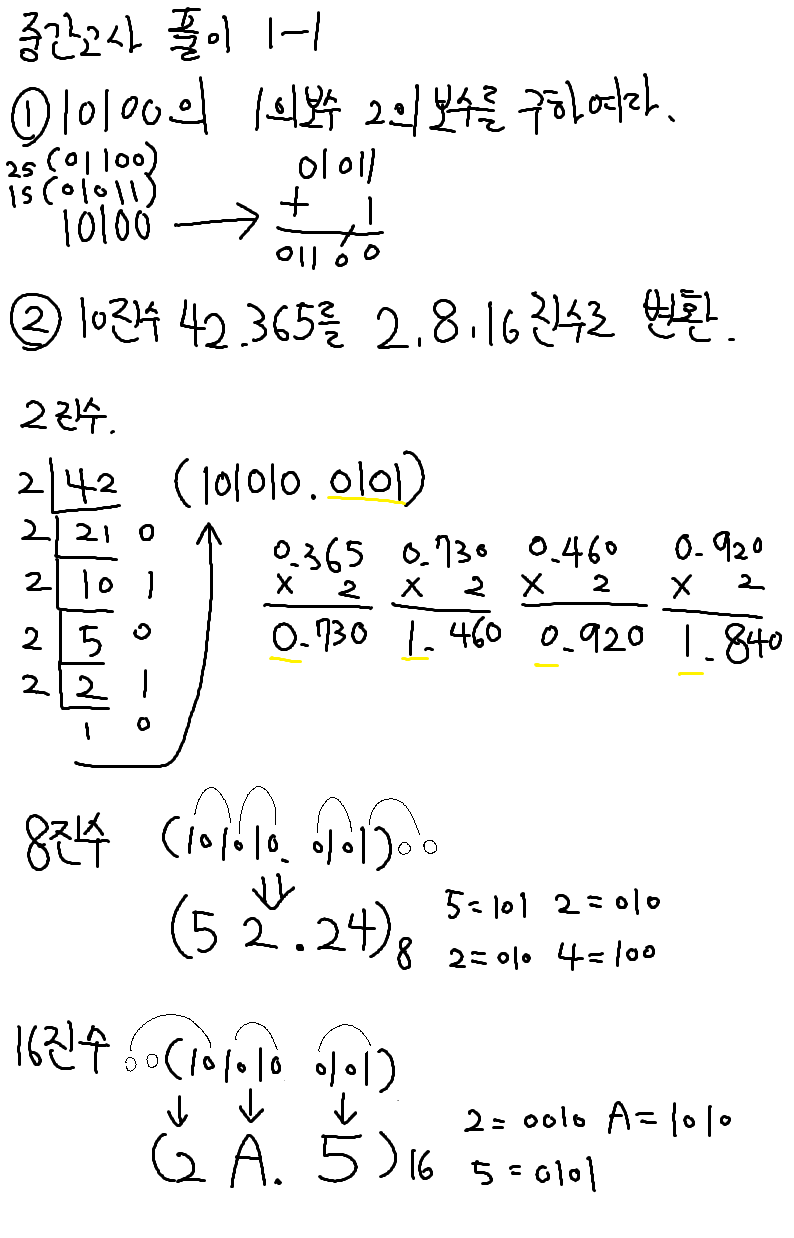 중간고사 풀이 1-1
① 10100의 1의보수 2의 보수를 구하여라.
2S (01100)
1S (01011)
10100 → 01011
+ 1
01100
② 10진수 42.365를 2.8.16진수로 변환.
2진수.
2 42 (101010.0101)
2 21 0
2 10 1
2 5 0
2 2 1
1 0
0.365 0.730 0.460 0.920
X 2 X 2 X 2 X 2
0.730 1.460 0.920 1.840
8진수 (101010. 0101)00
(52.24)8 5=101 2=010
2=010 4=100
16진수 00(101010 0101)
(2 A. 5)16 2=0010 A=1010
5=0101